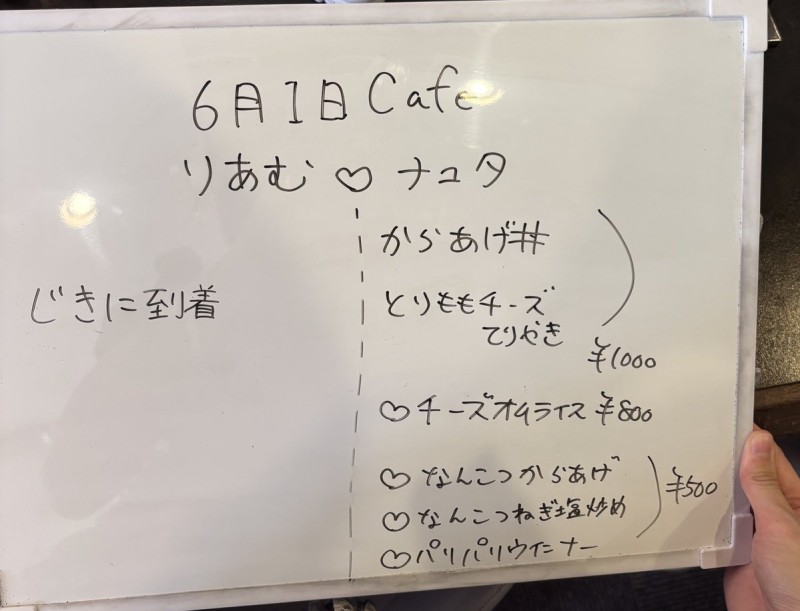 6月1日 Cafe
りあむ ♡ ナユタ
じきに到着
からあげ丼
とりももチーズ
てりやき
¥1000
♡チーズオムライス ¥800
♡なんこつからあげ
♡なんこつねぎ塩炒め
¥500
♡パリパリウインナー